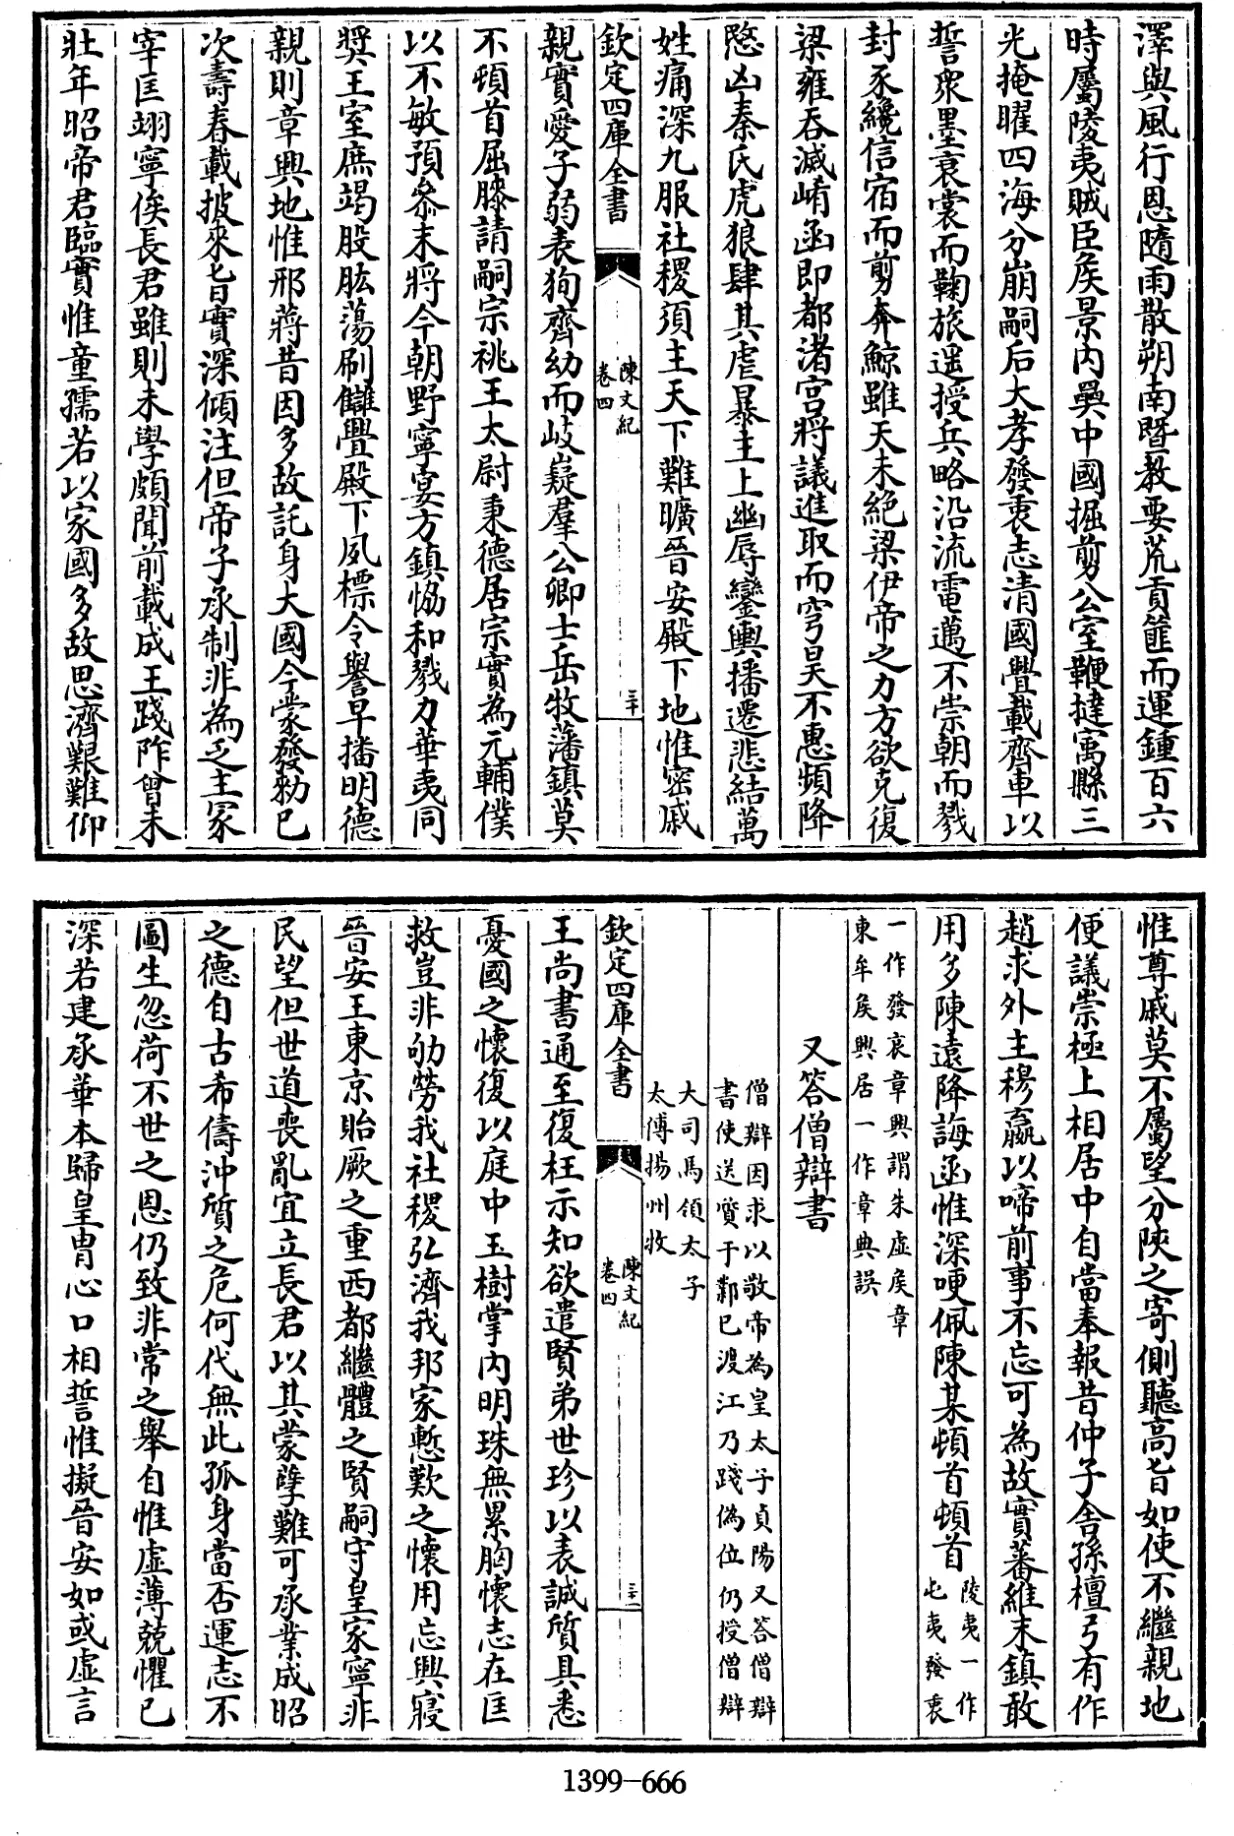 澤與風行恩隨雨散朔南暨教要荒貢篚而運鍾百六
時屬陵夷賊臣侯景內奰中國掘剪公室鞭撻寓縣三
光掩曜四海分崩嗣后大孝發衷志清國釁載齊車以
誓衆墨衰裳而鞠旅遥授兵略沿流電邁不崇朝而戮
封豕纔信宿而剪奔鯨雖天未絶梁伊帝之力方欲克復
梁雍吞滅崤函即都渚宫將議進取而穹昊不惠頻降
愍凶秦氏虎狼肆其虐暴主上幽辱鑾輿播遷悲結萬
姓痛深九服社稷須主天下難曠晉安殿下地惟密戚
欽定四庫全書
陳文紀
卷四
三十
親實愛子弱表狥齊幼而岐嶷羣公卿士岳牧藩鎮莫
不頓首屈膝請嗣宗祧王太尉秉德居宗實為元輔僕
以不敏預叅末將今朝野寧宴方鎮恊和戮力華夷同
奬王室庶竭股肱蕩刷讎釁殿下夙標令譽早播明德
親則章興地惟邢蔣昔因多故託身大國今蒙發勑已
次壽春載披來旨實深傾注但帝子承制非為乏主冢
宰匡翊寧俟長君雖則未學頗聞前載成王踐阼曾未
壯年昭帝君臨實惟童孺若以家國多故思濟艱難仰
惟尊戚莫不屬望分陜之寄側聽高旨如使不繼親地
便議崇極上相居中自當奉報昔仲子舍孫檀弓有作
趙求外主穆嬴以啼前事不忘可為故實蕃維末鎮敢
用多陳遠降誨函惟深哽佩陳某頓首頓首
陵夷一作
屯夷發衷
一作發哀章興謂朱虛矦章
東牟矦興居一作章典誤
又答僧辯書
僧辯因求以敬帝為皇太子貞陽又答僧辯
書使送質于鄴已渡江乃踐偽位仍授僧辯
大司馬領太子
太傅揚州牧
欽定四庫全書
陳文紀
卷四
三十一
王尚書通至復枉示知欲遣賢弟世珍以表誠質具悉
憂國之懷復以庭中玉樹掌內明珠無累胸懷志在匡
救豈非劬勞我社稷弘濟我邦家慙歎之懷用忘興寢
晉安王東京貽厥之重西都繼體之賢嗣守皇家寧非
民望但世道喪亂宜立長君以其蒙孽難可承業成昭
之德自古希儔沖質之危何代無此孤身當否運志不
圖生忽荷不世之恩仍致非常之舉自惟虛薄兢懼已
深若建承華本歸皇胄心口相誓惟擬晉安如或虛言
1399-666